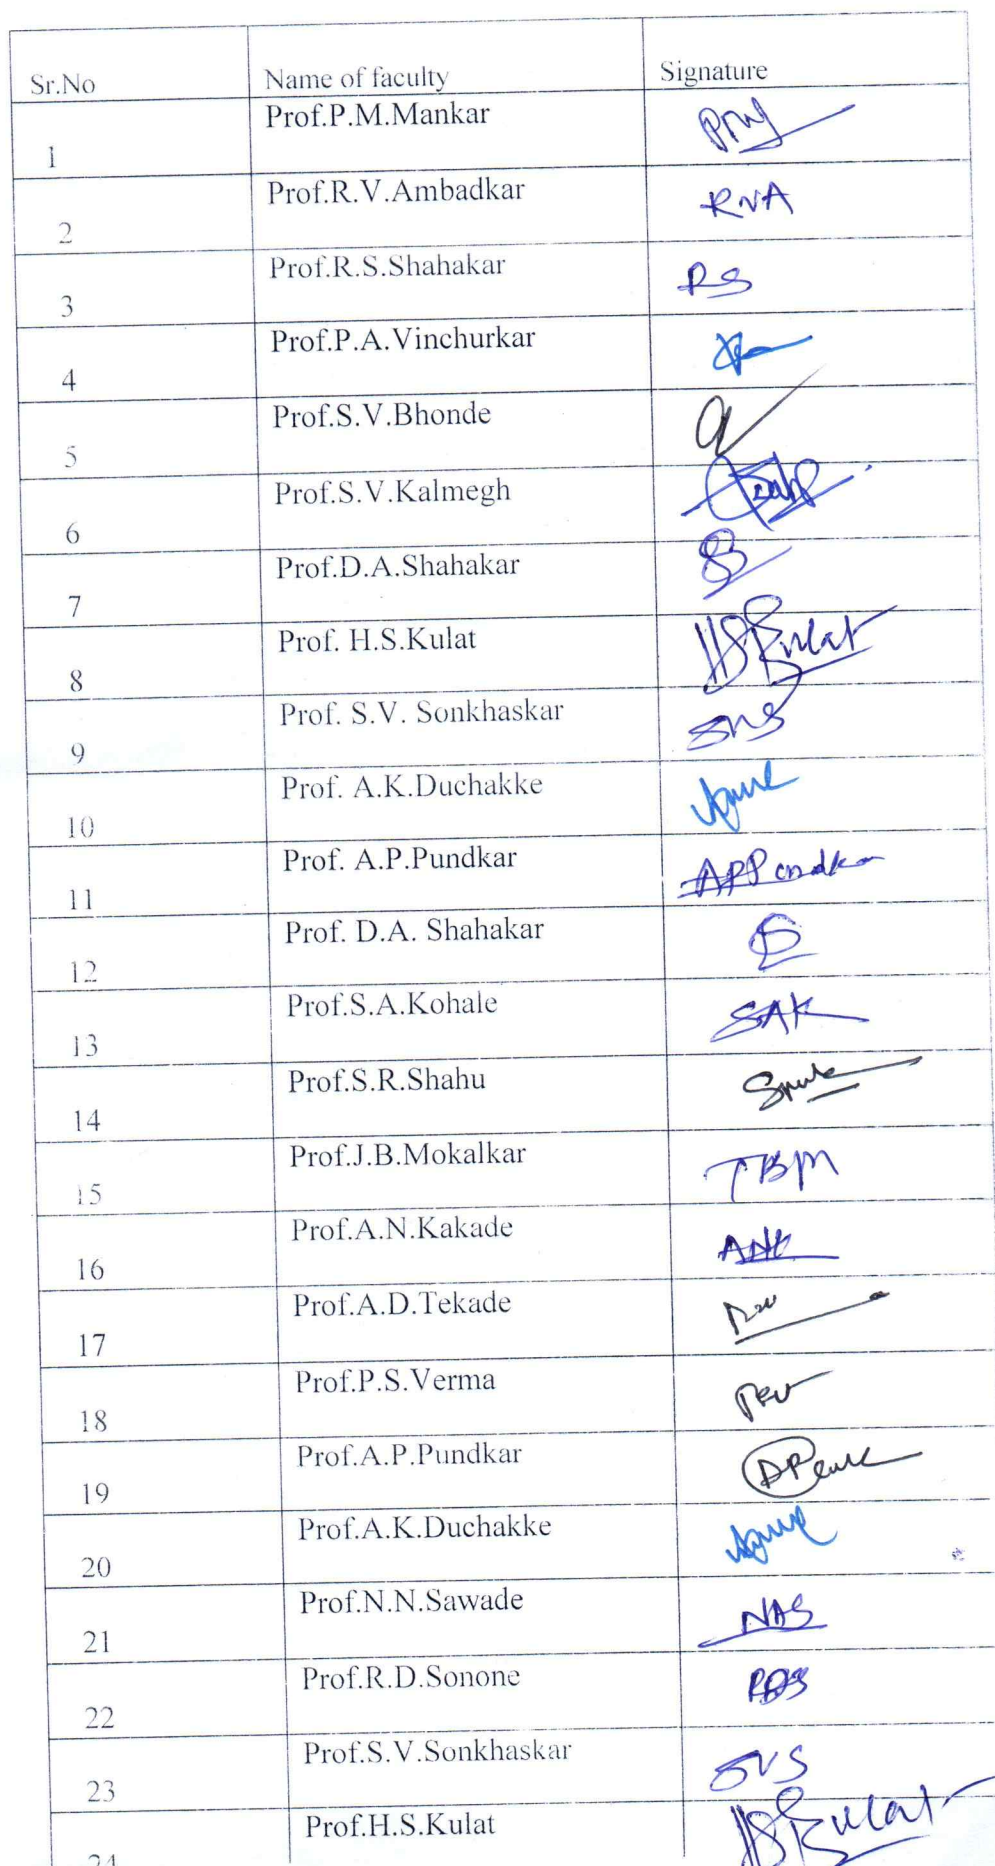 Sr.No Name of faculty Signature
1 Prof.P.M.Mankar
2 Prof.R.V.Ambadkar RVA
3 Prof.R.S.Shahakar RS
4 Prof.P.A.Vinchurkar
5 Prof.S.V.Bhonde
6 Prof.S.V.Kalmegh
7 Prof.D.A.Shahakar
8 Prof. H.S.Kulat HSKulat
9 Prof. S.V. Sonkhaskar SVS
10 Prof. A.K.Duchakke
11 Prof. A.P.Pundkar APPundkar
12 Prof. D.A. Shahakar
13 Prof.S.A.Kohale SAK
14 Prof.S.R.Shahu
15 Prof.J.B.Mokalkar JBM
16 Prof.A.N.Kakade ANK
17 Prof.A.D.Tekade
18 Prof.P.S.Verma
19 Prof.A.P.Pundkar
20 Prof.A.K.Duchakke
21 Prof.N.N.Sawade NAS
22 Prof.R.D.Sonone RDS
23 Prof.S.V.Sonkhaskar SVS
24 Prof.H.S.Kulat HSKulat